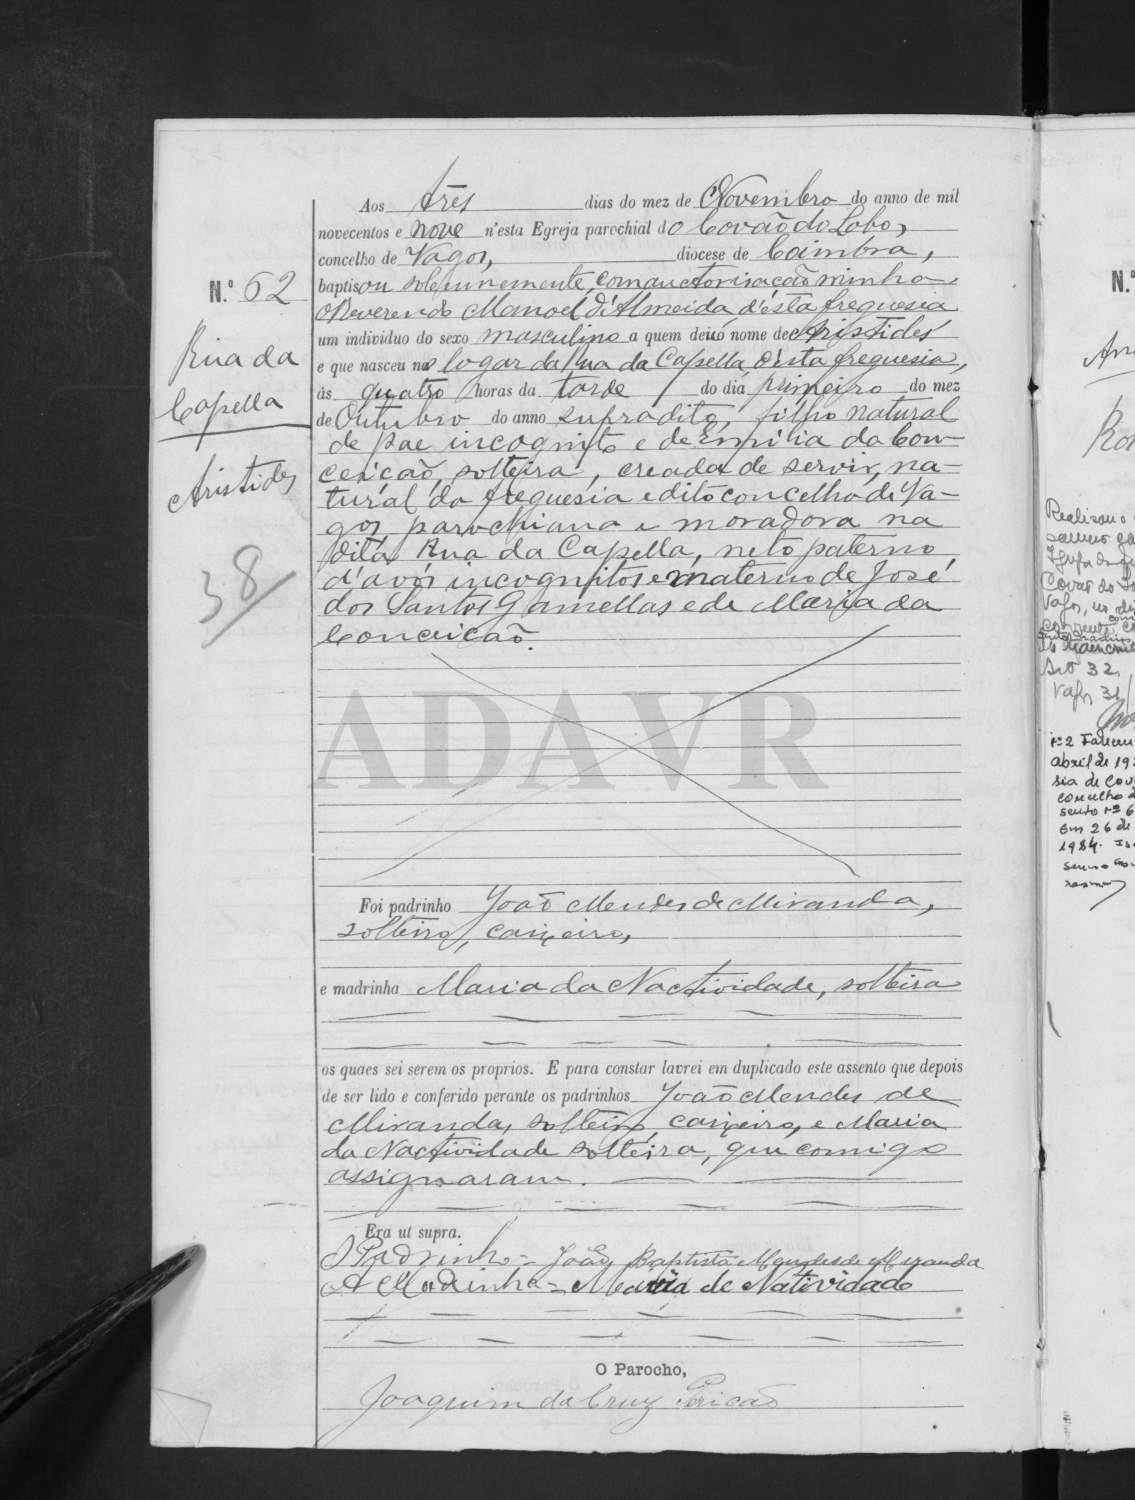 N.º 62
Rua da
Capella
Aristides
38
Aos três dias do mez de Novembro do anno de mil
novecentos e nove n'esta Egreja parochial do Covão do Lobo,
concelho de Vagos, diocese de Coimbra,
baptisou solemnemente, com auctorisacão minha
o Reverendo Manoel d'Almeida d'ésta freguesia
um individuo do sexo masculino a quem deu o nome de Aristides
e que nasceu no logar da Rua da Capella, d'ésta freguesia,
ás quatro horas da tarde do dia primeiro do mez
de Outubro do anno supradito, filho natural
de pae incognito e de Emilia da Con-
ceicão, solteira, creada de servir, na-
tural da freguesia e dito concelho de Va-
gos, parochiana e moradora na
dita Rua da Capella, neto paterno
d'avós incognitos e materno de José
dos Santos Gamellas e de Maria da
Conceicão.
ADAVR
Foi padrinho João Mendes de Miranda,
solteiro, caixeiro,
e madrinha Maria da Nactividade, solteira
os quaes sei serem os proprios. E para constar lavrei em duplicado este assento que depois
de ser lido e conferido perante os padrinhos João Mendes de
Miranda, solteiro, caixeiro, e Maria
da Nactividade solteira, que comigo
assignaram.
Era ut supra.
O Padrinho = João Baptista Mendes de Miranda
A Madrinha = Maria de Natividade
O Parocho,
Joaquim da Cruz Pericão
N.º
Realisou o
Covão do Lo
Vagos, no di
32
Vagos 31
nº 2 Faleceu
abril de 19
sia de Cov
concelho d
sento nº 6
Em 26 de
1984.